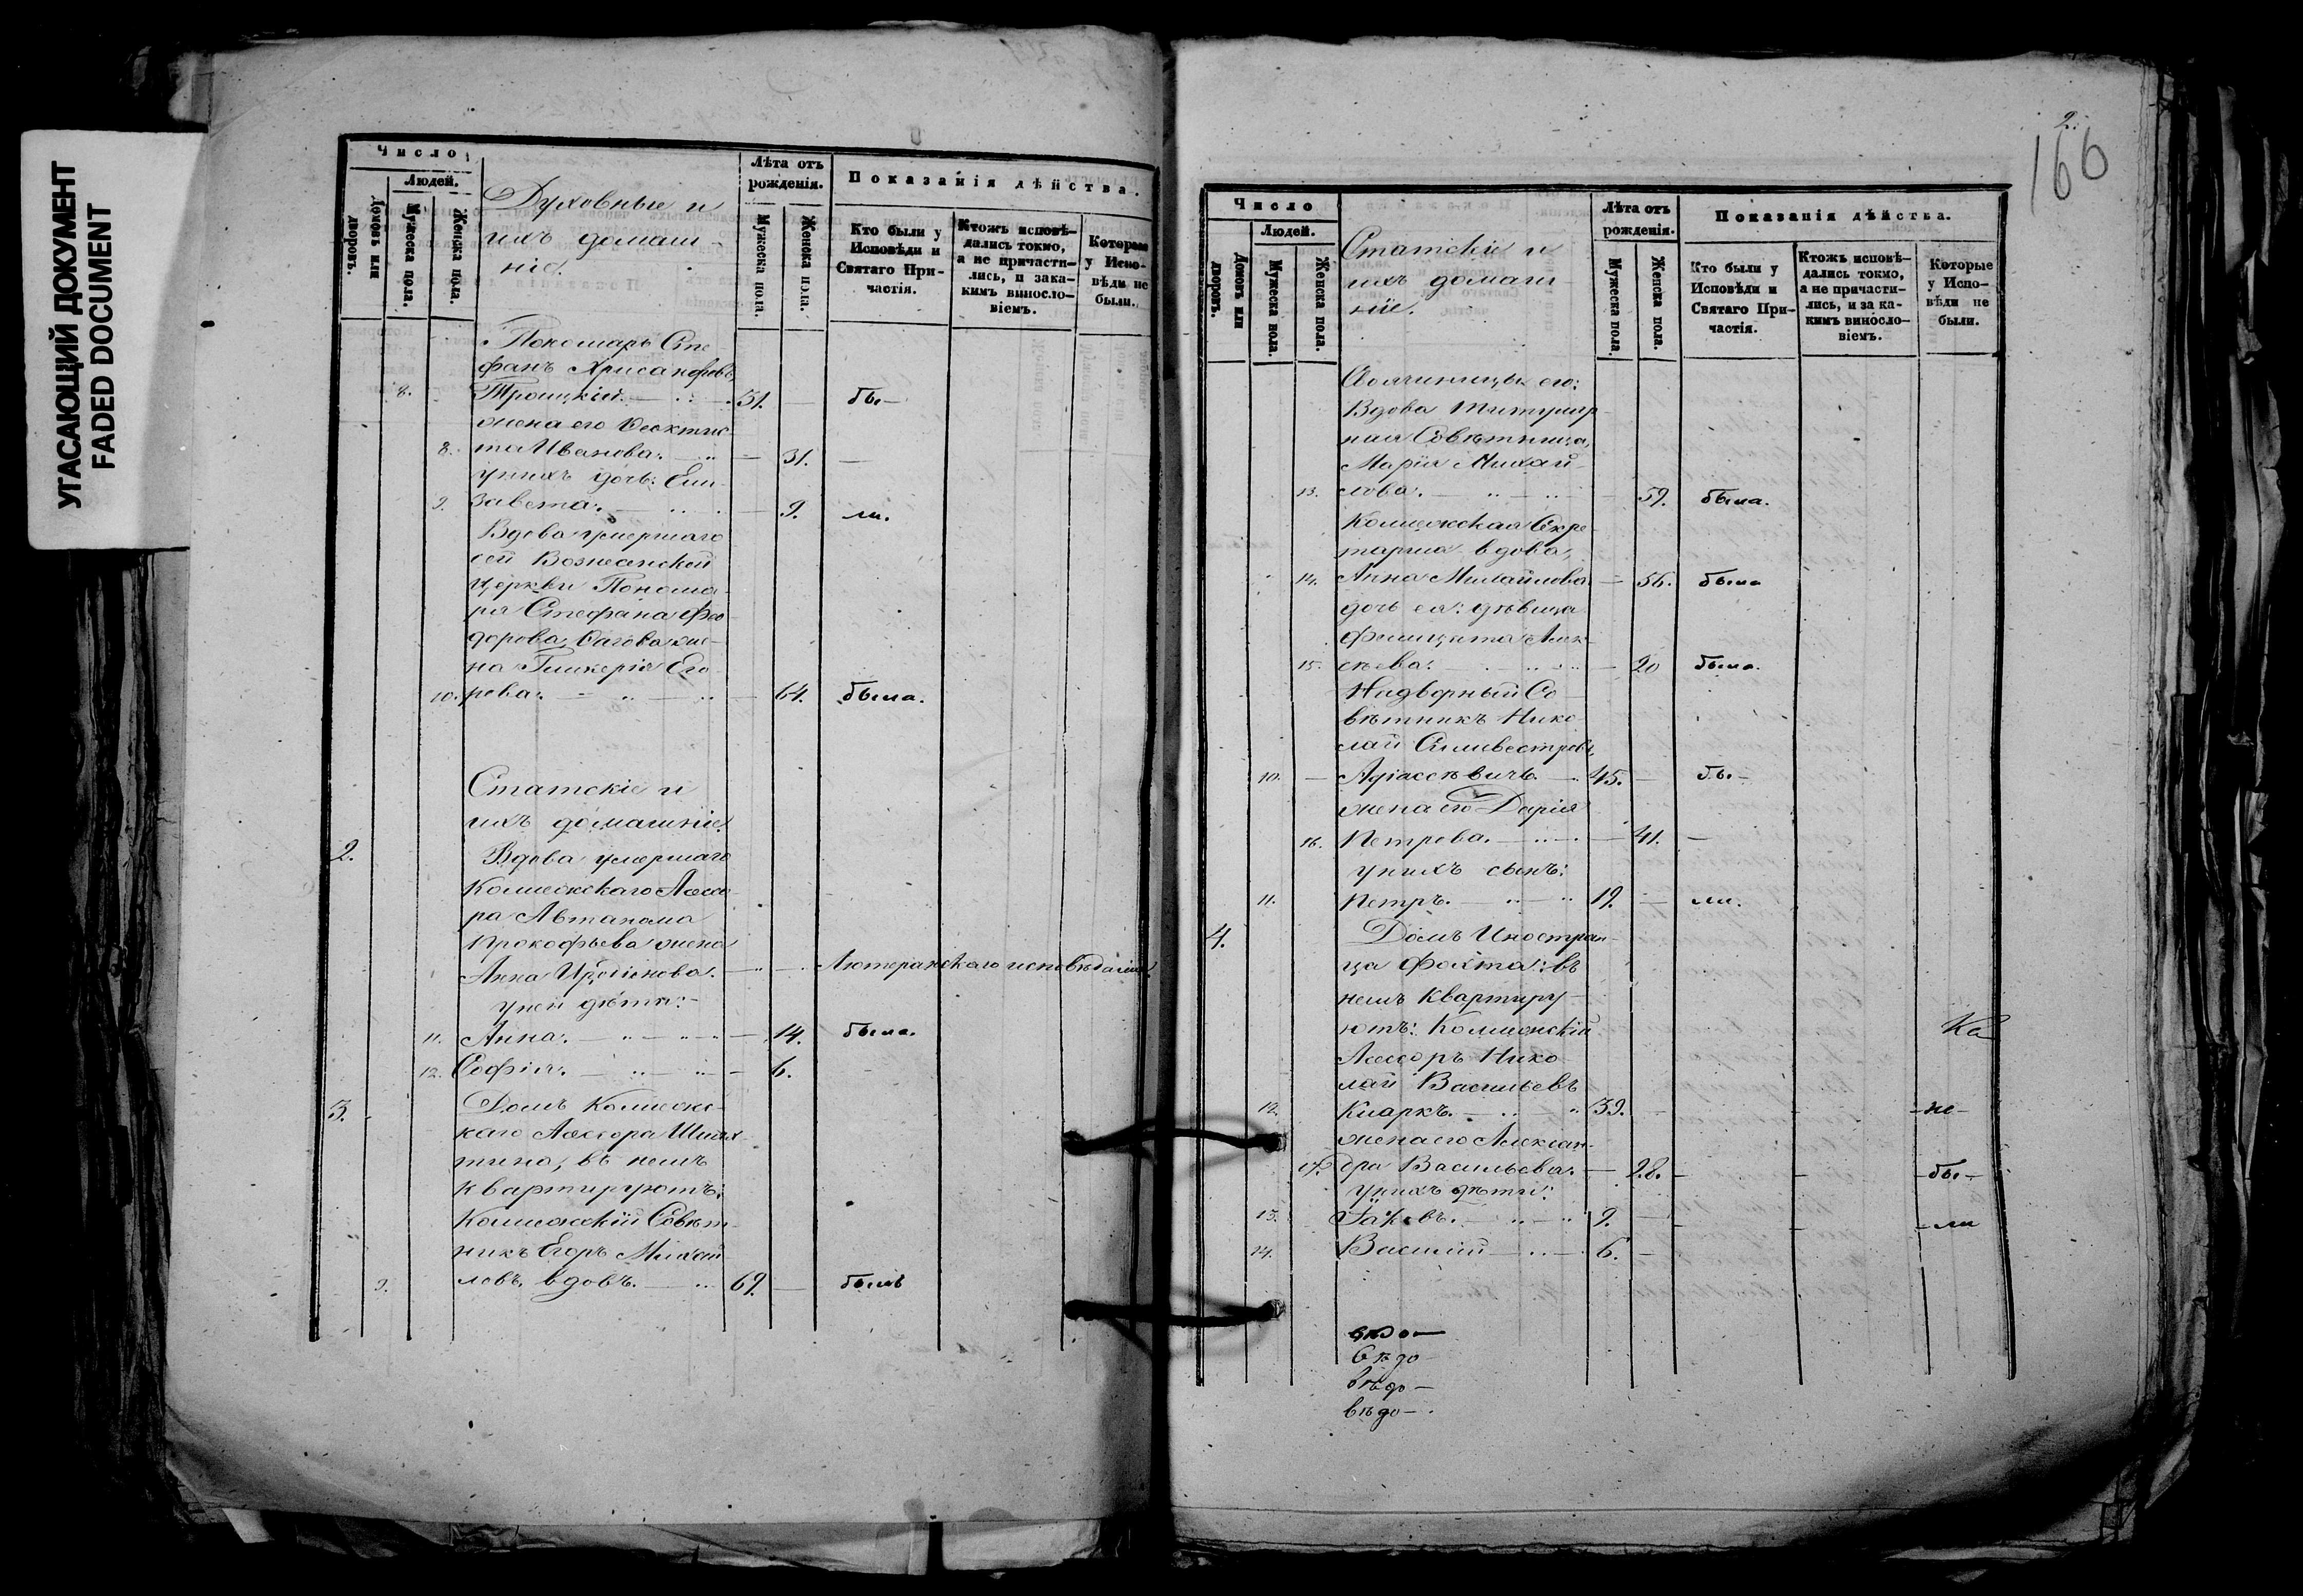 УГАСАЮЩИЙ ДОКУМЕНТ
FADED DOCUMENT
Число
Людей.
Домовъ или дворовъ.
Мужеска пола.
Женска пола.
Духовные и
ихъ домаш-
ніе.
Лѣта отъ рожденія.
Мужеска пола.
Женска пола.
Показанія дѣйства.
Кто были у Исповѣди и Святаго Причастія.
Ктожъ исповѣдались токмо, а не причастились, и за какимъ винословіемъ.
Которые у Исповѣди не были.
Пономарь Сте
фанъ Хрисанфовъ
8. Троицкій. 31. бы-
жена его Феоктис-
8. та Иванова. 31. —
у нихъ дочь: Ели-
9. завета. 9. ли.
Вдова умершаго
сей
церкви Понома-
ря Стефана Фео
дорова, же-
на Гликерія Его-
10. рова. 64. была.
Статскіе и
ихъ домашніе.
2. Вдова умершаго
Коллежскаго Ассесо
ра Автанома
Прокофьева жена
Анна Лютеранскаго исповѣданія
у ней дѣти:
11. Анна. 14. была.
12. Софія. 6.
3. Домъ Коллежс-
каго Ассесора
тина, въ немъ
квартируютъ:
Коллежскій Совѣт-
никъ Егоръ Михай
9. ловъ, вдовъ. 69. былъ
2.
166
Число
Людей.
Домовъ или дворовъ.
Мужеска пола.
Женска пола.
Статскіе и
ихъ домаш
ніе.
Лѣта отъ рожденія.
Мужеска пола.
Женска пола.
Показанія дѣйства.
Кто были у Исповѣди и Святаго Причастія.
Ктожъ исповѣдались токмо, а не причастились, и за какимъ винословіемъ.
Которые у Исповѣди не были.
его:
Вдова Титуляр-
ная Совѣтница,
Марія Михай-
13. лова. 59. была.
Коллежская Секре-
тарша вдова,
14. Анна Михайлова 56. была
дочь ея: дѣвица
Фелицата Алек-
15. сѣева. 20 была.
Надворный Со-
вѣтникъ Нико
лай Сильвестровъ
10. 45. бы-
жена его Дарія
16. Петрова. 41. —
у нихъ сынъ:
11. Петръ. 19. ли.
4. Домъ Иностран-
ца Фохта: въ
немъ квартиру-
ютъ: Коллежскій
Ассесоръ Нико
лай Васильевъ
12. Кларкъ. 39. не
жена его Алексан-
17. дра Васильева. 28. бы-
у нихъ дѣти:
13. Іаковъ. 9. ли
14. Василій 6.
вѣдо-
вѣдо-
вѣдо-